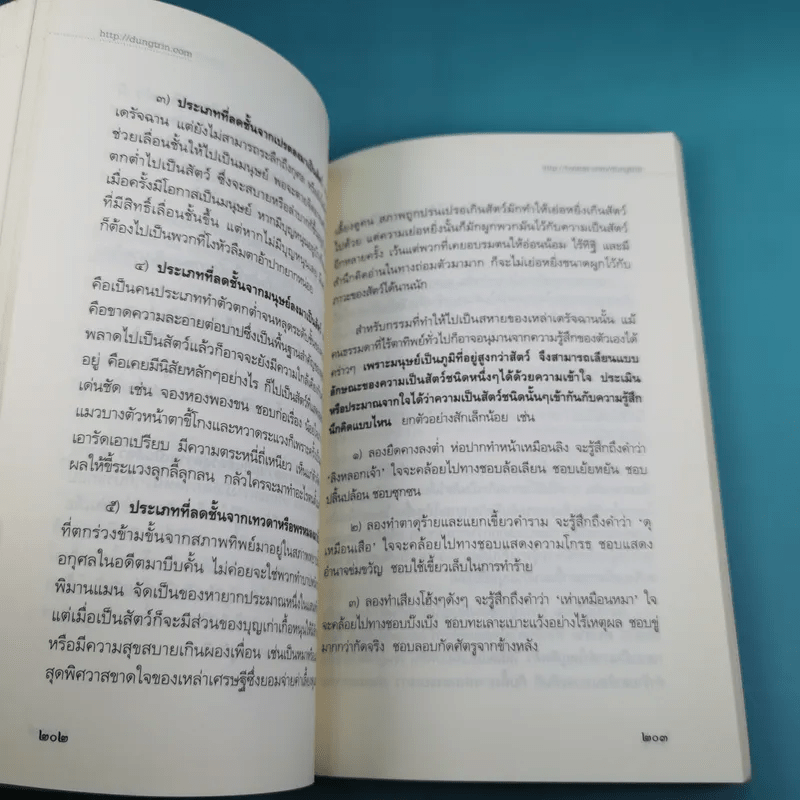 http://dungtrin.com
๓) ประเภทที่ลดชั้นจากเปรตลงมาเป็น
เดรัจฉาน แต่ยังไม่สามารถระลึกถึงกุศล
ช่วยเลื่อนชั้นให้ไปเป็นมนุษย์ พอจะตาย
ตกต่ำไปเป็นสัตว์ ซึ่งจะสบายหรือลำบาก
เมื่อครั้งมีโอกาสเป็นมนุษย์ หากมีบุญหนุน
ที่มีสิทธิ์เลื่อนชั้นขึ้น แต่หากไม่มีบุญหนุน
ก็ต้องไปเป็นพวกที่โงหัวลืมตาอ้าปากยากหน่อย
๔) ประเภทที่ลดชั้นจากมนุษย์ลงมาเป็น
คือเป็นคนประเภททำตัวตกต่ำจนหลุดระดับ
คือขาดความละอายต่อบาปซึ่งเป็นพื้นฐานสำคัญ
พลาดไปเป็นสัตว์แล้วก็อาจจะยังมีความใกล้
อยู่ คือเคยมีนิสัยหลักๆอย่างไร ก็ไปเป็นสัตว์
เด่นชัด เช่น จองหองพองขน ชอบก่อเรื่อง
แมวบางตัวหน้าตาขี้โกงและหวาดระแวงก็เพราะ
เอารัดเอาเปรียบ มีความตระหนี่ถี่เหนียว เห็นแก่
ผลให้ขี้ระแวงลุกลี้ลุกลน กลัวใครจะมาทำอะไร
๕) ประเภทที่ลดชั้นจากเทวดาหรือพรหม
ที่ตกร่วงข้ามขั้นจากสภาพทิพย์มาอยู่ในสภาพ
อกุศลในอดีตมาบีบคั้น ไม่ค่อยจะใช่พวกทำบาป
พิมานแมน จัดเป็นของหายากประมาณหนึ่งใน
แต่เมื่อเป็นสัตว์ก็จะมีส่วนของบุญเก่าเกื้อหนุนให้
หรือมีความสุขสบายเกินผองเพื่อน เช่นเป็นหมา
สุดพิศวาสขาดใจของเหล่าเศรษฐีซึ่งยอมจ่ายค่าเลี้ยง
๒๐๒
เลี้ยงดูคน สภาพถูกปรนเปรอเกินสัตว์มักทำให้เย่อหยิ่งเกินสัตว์
ไปด้วย แต่ความเย่อหยิ่งนั้นก็มักผูกพวกมันไว้กับความเป็นสัตว์
อีกหลายครั้ง เว้นแต่พวกที่เคยอบรมตนให้อ่อนน้อม ไร้ทิฐิ และมี
สำนึกคิดอ่านในทางถ่อมตัวมามาก ก็จะไม่เย่อหยิ่งขนาดผูกไว้กับ
ภาวะของสัตว์ได้นานนัก
สำหรับกรรมที่ทำให้ไปเป็นสหายของเหล่าเดรัจฉานนั้น แม้
คนธรรมดาที่ไร้ตาทิพย์ทั่วไปก็อาจอนุมานจากความรู้สึกของตัวเองได้
คร่าวๆ เพราะมนุษย์เป็นภูมิที่อยู่สูงกว่าสัตว์ จึงสามารถเลียนแบบ
ลักษณะของความเป็นสัตว์ชนิดหนึ่งๆได้ด้วยความเข้าใจ ประเมิน
หรือประมาณจากใจได้ว่าความเป็นสัตว์ชนิดนั้นๆเข้ากันกับความรู้สึก
นึกคิดแบบไหน ยกตัวอย่างสักเล็กน้อย เช่น
๑) ลองยืดคางลงต่ำ ห่อปากทำหน้าเหมือนลิง จะรู้สึกถึงคำว่า
‘ลิงหลอกเจ้า’ ใจจะคล้อยไปทางชอบล้อเลียน ชอบเย้ยหยัน ชอบ
ปลิ้นปล้อน ชอบซุกซน
๒) ลองทำตาดุร้ายและแยกเขี้ยวคำราม จะรู้สึกถึงคำว่า ‘ดุ
เหมือนเสือ’ ใจจะคล้อยไปทางชอบแสดงความโกรธ ชอบแสดง
อำนาจข่มขวัญ ชอบใช้เขี้ยวเล็บในการทำร้าย
๓) ลองทำเสียงโฮ้งๆดังๆ จะรู้สึกถึงคำว่า ‘เห่าเหมือนหมา’ ใจ
จะคล้อยไปทางชอบบ๊งเบ๊ง ชอบทะเลาะเบาะแว้งอย่างไร้เหตุผล ชอบขู่
มากกว่ากัดจริง ชอบลอบกัดศัตรูจากข้างหลัง
๒๐๓